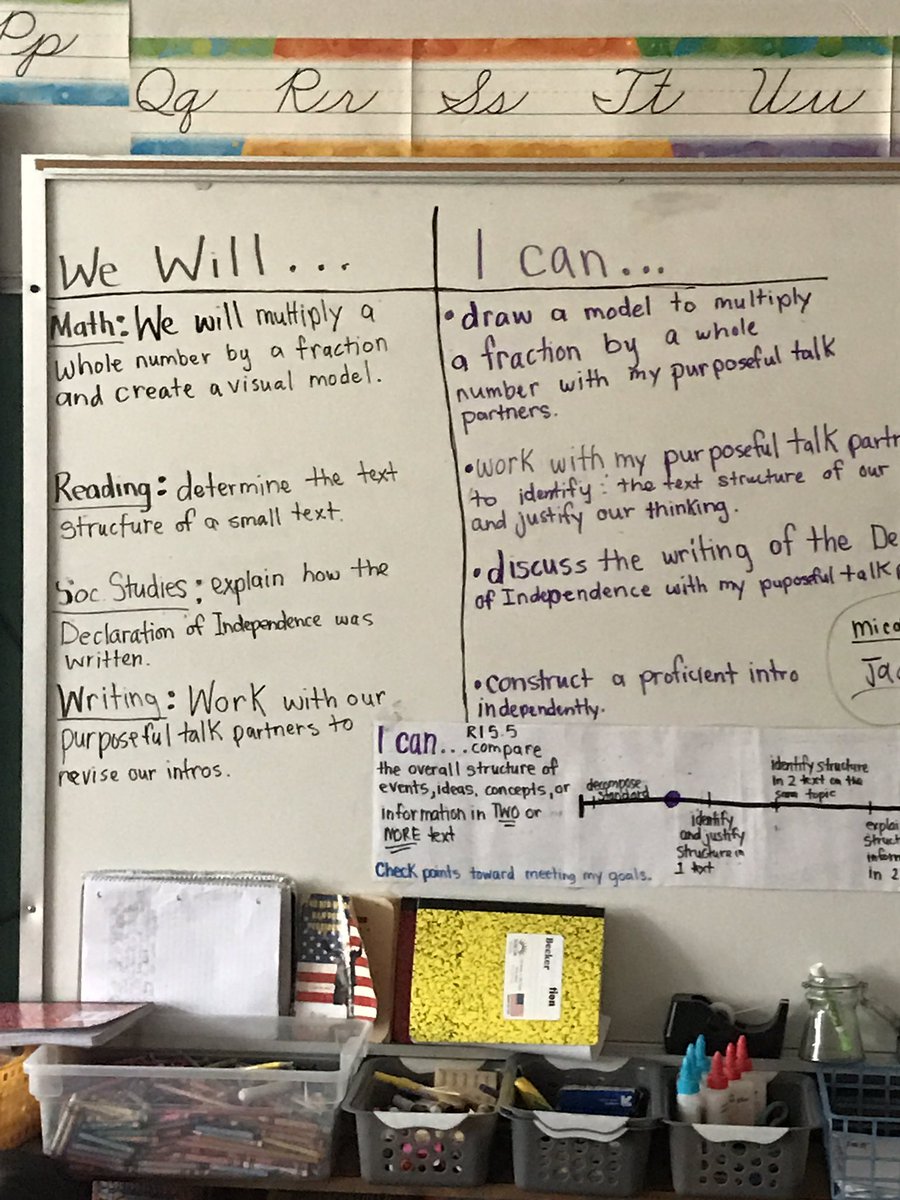 Pp
Qq Rr Ss Tt Uu
We Will...
Math: We will multiply a
whole number by a fraction
and create a visual model.
Reading: determine the text
structure of a small text.
Soc. Studies: explain how the
Declaration of Independence was
written.
Writing: Work with our
purposeful talk partners to
revise our intros.
I can...
•draw a model to multiply
a fraction by a whole
number with my purposeful talk
partners.
•work with my purposeful talk partn
to identify: the text structure of our
and justify our thinking.
•discuss the writing of the De
of Independence with my puposeful talk p
•construct a proficient intro
independently.
mica
Jac
I can... RI5.5
compare
the overall structure of
events, ideas, concepts, or
information in TWO or
MORE text
Check points toward meeting my goals.
decompose
standard
identify
and justify
structure in
1 text
identify structure
in 2 text on the
same topic
explai
struct
inform
in 2
Becker